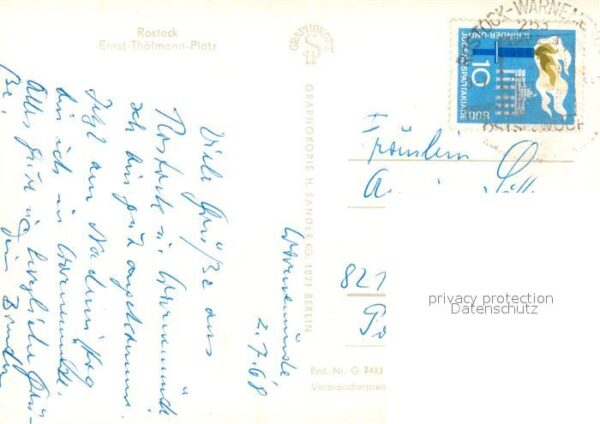 Rostock
Ernst-Thälmann-Platz
Warnemünde
2.7.68
Viele Grüße aus
Rostock u. Warnemünde
ich bin gut angekommen.
Jetzt am Nachmittag
bin ich in Warnemünde.
Alles Gute u. herzliche Grü-
ße.
Dein Bruder
GRAPHOKOPIE
GRAPHOKOPIE H. SANDER KG, 1071 BERLIN
Best.-Nr. G 8483
Verbraucherpreis
ROSTOCK-WARNEMÜ
OSTSEEWOCH
II. KINDER- UND
JUGENDSPARTAKIADE
10
DDR
Fräulein
821
privacy protection
Datenschutz